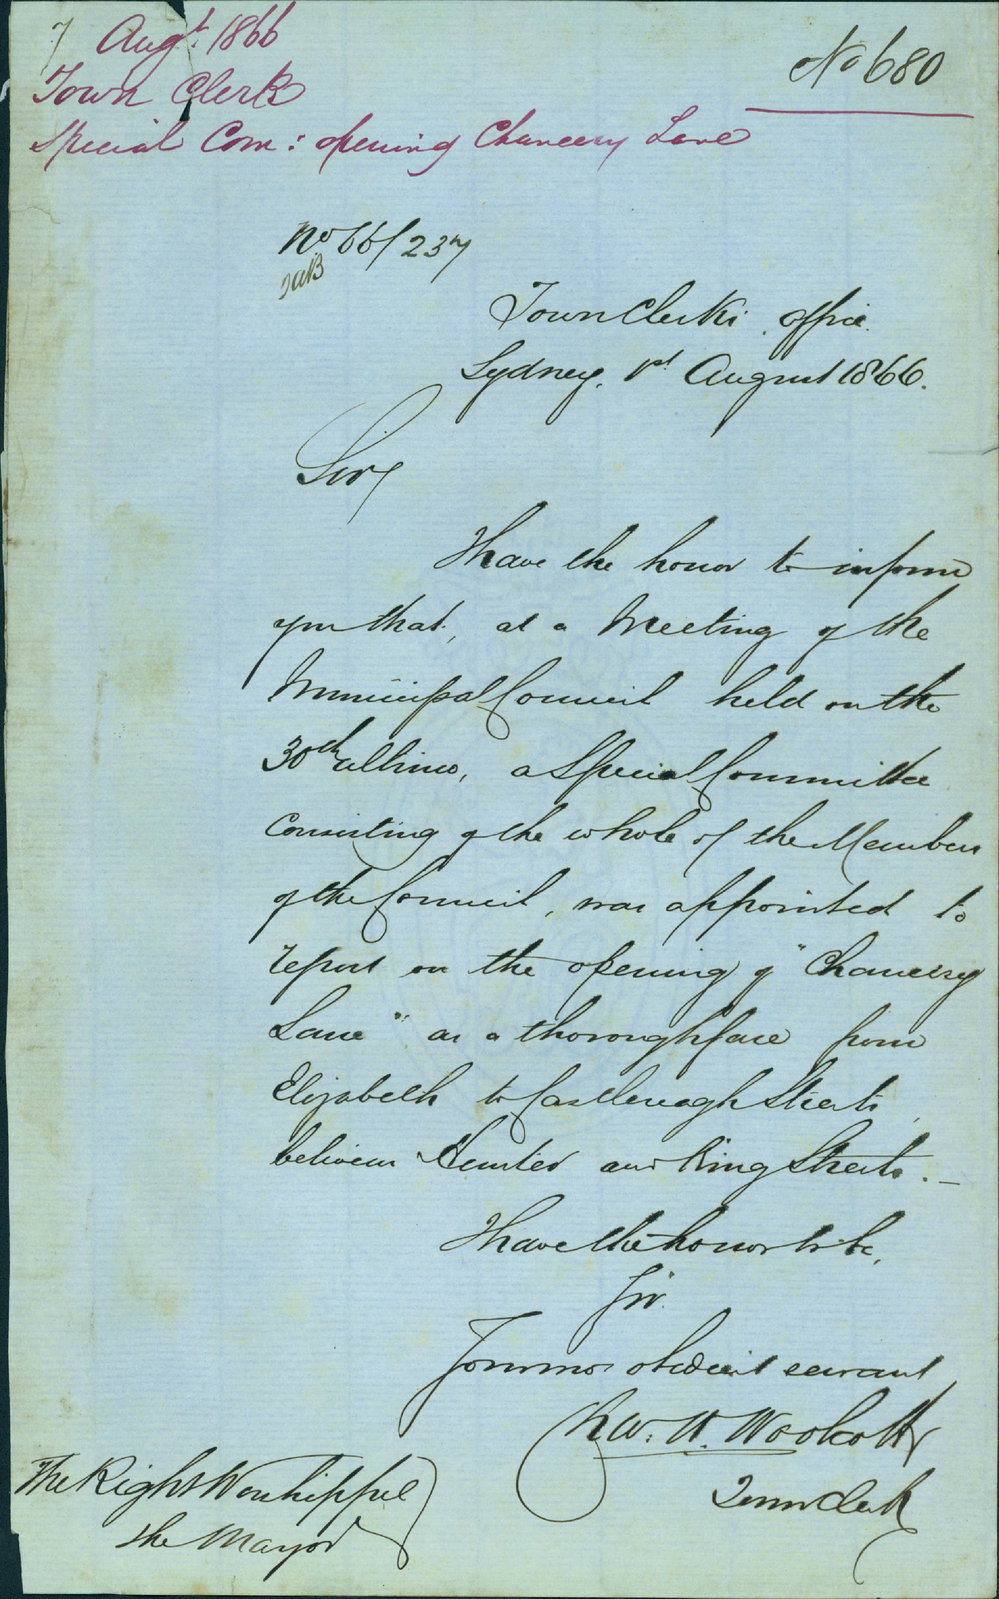 7 Augt. 1866
Town Clerk
Special Com: opening Chancery Lane
No 680
No 66/237
Town Clerks Office
Sydney, 1st August 1866.
Sir,
I have the honor to inform
you that, at a Meeting of the
Municipal Council held on the
30th ultimo, a Special Committee
consisting of the whole of the Members
of the Council, was appointed to
report on the opening of "Chancery
Lane" as a thoroughfare from
Elizabeth to Castlereagh Streets,
between Hunter and King Streets. —
I have the honor to be,
Sir.
Your mos obedient servant
Chas. H. Woolcott
Town Clerk
The Right Worshipful
the Mayor